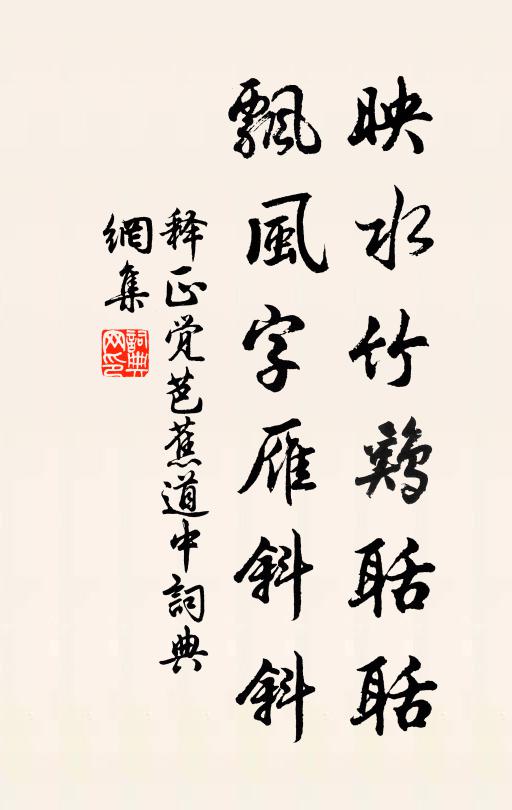 映水竹鷄聒聒
飄風字雁斜斜
释正觉芭蕉道中詞典
網集
詞典
网印